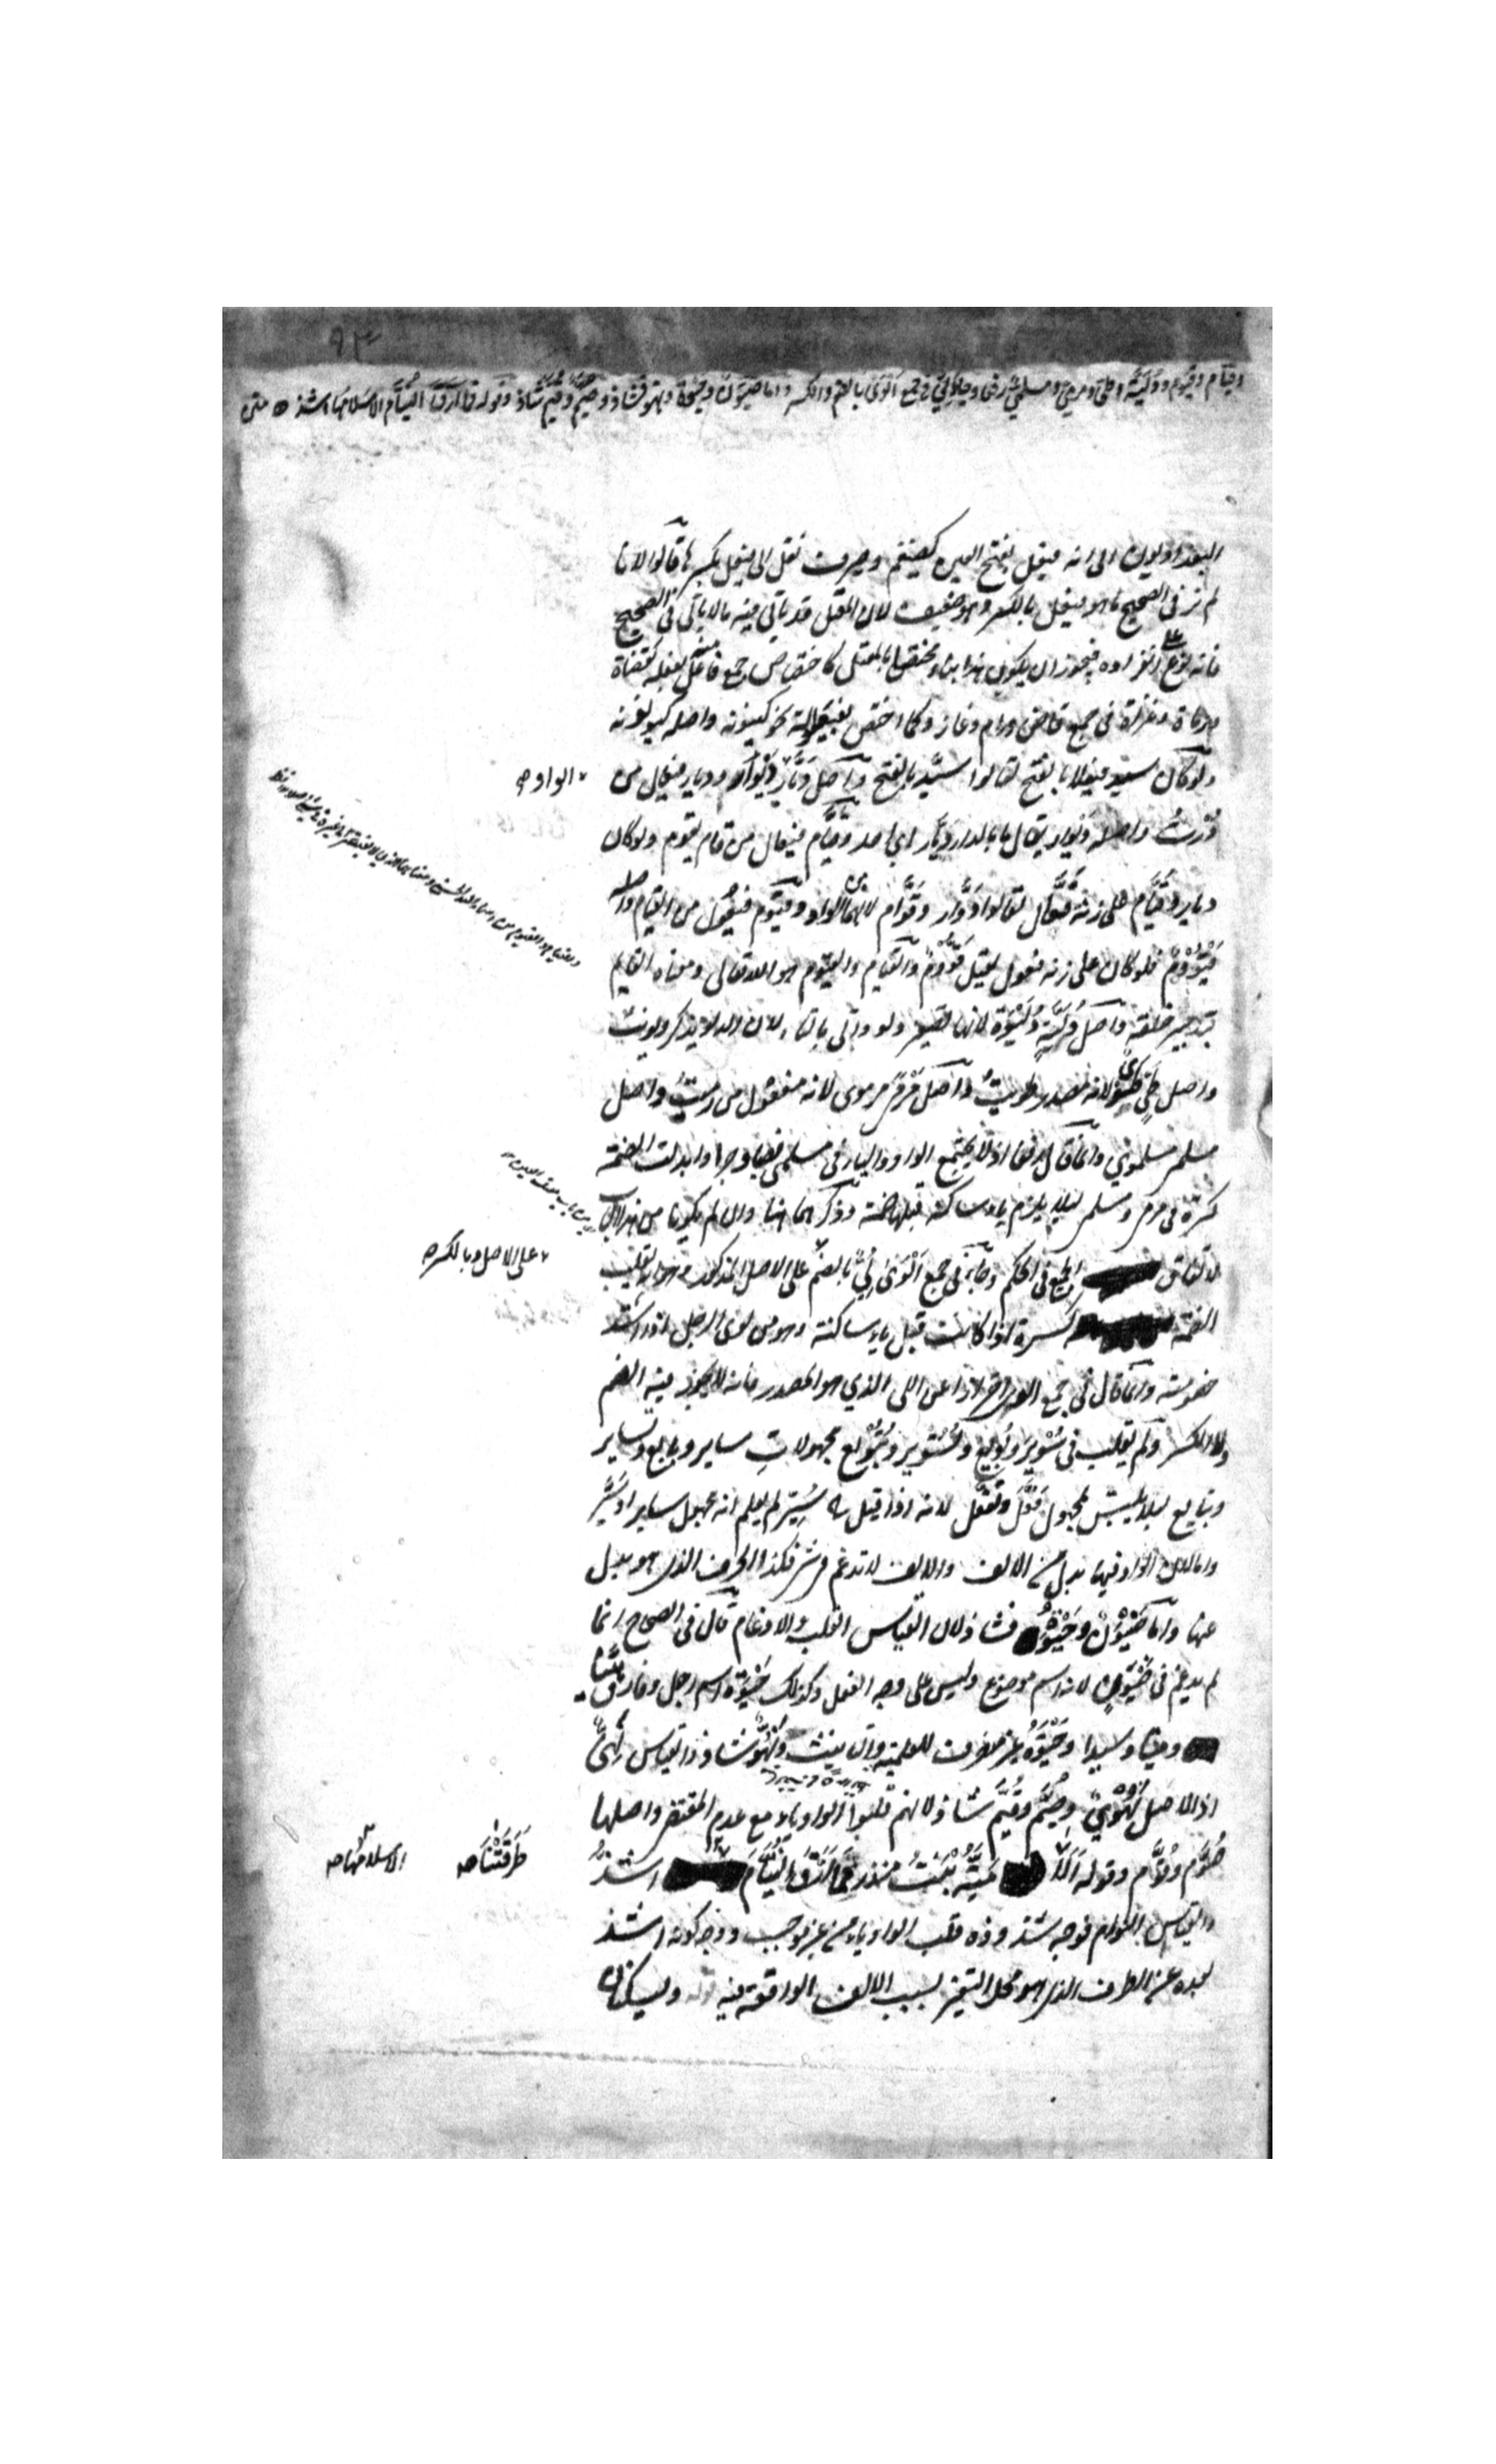 ٩٣
وقيام وقيوم ودلية وطي ومرمي ومسلمي رفعا وجاء لي في جمع ألوى بالضم والكسر واما ضيون وحيوة ونهو فشاذ وصيم وقيم شاذ وقوله فما ارق النيام الا سلامها اشذ ه متن
البغداديون الى انه فيعل بفتح العين كضيغم وصيرف نقل الى فيعل بكسرها قالوا لانا
لم نر في الصحيح ما هو فيعل بالكسر وهو ضعيف لان المعتل قد يأتي فيه ما لا يأتي في الصحيح
فانه نوع على انفراده فيجوز ان يكون هذا بناء مختصا بالمعتل كاختصاص جمع فاعل منه بفعلة كقضاة
ورماة وغزاة في جمع قاض ورام وغاز وكما اختص بفيعلولة نحو كينونة واصله كيونونة
ولو كان سيد فيعلا بالفتح لقالوا سيد بالفتح واصل ديار ديوار وديار فيعال من
الواو صح
درت واصله ديوار يقال ما بالدار ديار اي احد وقيام فيعال من قام يقوم ولو كان
ديار وقيام على زنة فعال لقالوا دوار وقوام لانهما من الواو وقيوم فيعول من القيام واصله
قيووم فلو كان على زنه فعول لقيل قووم والقيام والقيوم هو الله تعالى ومعناه القايم
بتدبير خلقه واصل دلية دليوة لانها تصغير دلو واتى بالتاء لان الدلو يذكر ويونث
واصل طي طوي لانه مصدر طويت واصل مرمي مرموي لانه مفعول من رميت واصل
مسلمي مسلموي وانما قال رفعا اذ لا يجتمع الواو والياء في مسلمي نصبا وجرا وابدلت الضمة
كسرة في مرمي ومسلمي ليلا يلزم ياء ساكنة قبلها ضمة وذكرهما هنا وان لم يكونا من هذا الباب
لاتفاق الجميع في الحكم وجاء في جمع ألوى لي بالضم على الاصل المذكور وهو ان يقلب
على الاصل وبالكسر صح
الضمة كسرة اذا كانت قبل ياء ساكنة وهو من لوى الرجل اذا اشتد
خصومته وانما قال في جمع الوى احترازا عن اللي الذي هو المصدر فانه لا يجوز فيه الضم
ولا الكسر ولم يقلب في سوير وبويع وتسوير وتبويع مجهولات ساير وبايع وتساير
وتبايع ليلا يلتبس بمجهول فعل وتفعل لانه اذا قيل سير لم يعلم انه مجهول ساير او سير
واما لان الواو فيها بدل من الالف والالف لا تدغم في شي فكذا الحرف الذي هو بدل
عنها واما ضيون وحيوة فشاذ لان القياس القلب والادغام قال في الصحاح انما
لم يدغم في ضيون لانه اسم موضوع وليس على وجه الفعل وكذلك حيوة اسم رجل وفارق
هينا وميتا وسيدا وحيوة غير منصرف للعلمية والتانيث ونهو شاذ والقياس نهي
اذ الاصل نهوي وصيم وقيم شاذ لانهم قلبوا الواو ياء مع عدم المقتضي واصلها
صوم وقوم وقوله الا طرقتنا مية ابنت منذر فما ارق النيام الا سلامها اشذ
طرقتنا صح
الا سلامها صح
والقياس النوام فوجه شذوذه قلب الواو ياء من غير موجب ووجه كونه اشذ
لبعده عن الطرف الذي هو محل التغير بسبب الالف الواقعة فيه قوله ويسكنان